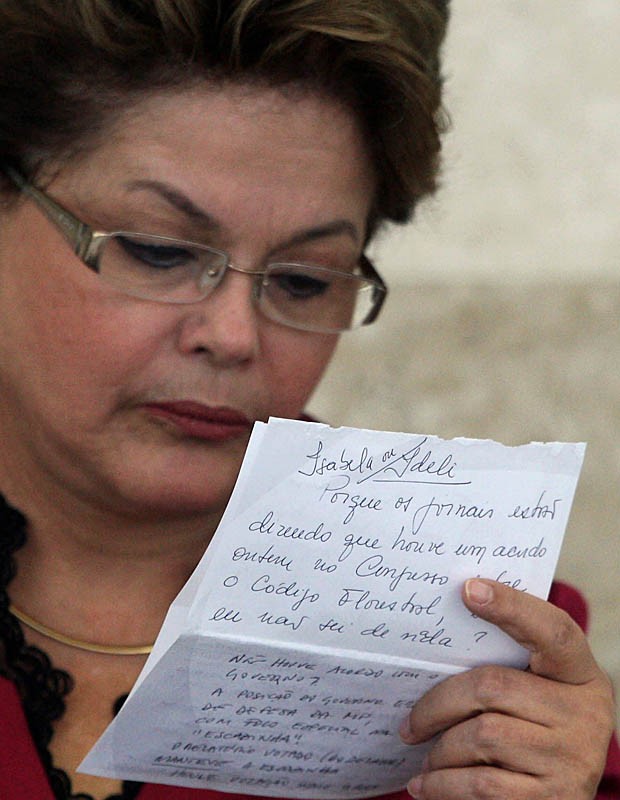 Isabela ou Ideli
Porque os jornais estão
dizendo que houve um acordo
ontem no Congresso sobre
o Código Florestal, e
eu não sei de nada?
NÃO HOUVE ACORDO COM O
GOVERNO?
A POSIÇÃO DO GOVERNO ERA
DE DEFESA DA MP
COM FOCO ESPECIAL NA
"ESCADINHA"
O RELATÓRIO VOTADO
MANTEVE A ESCADINHA
HOUVE